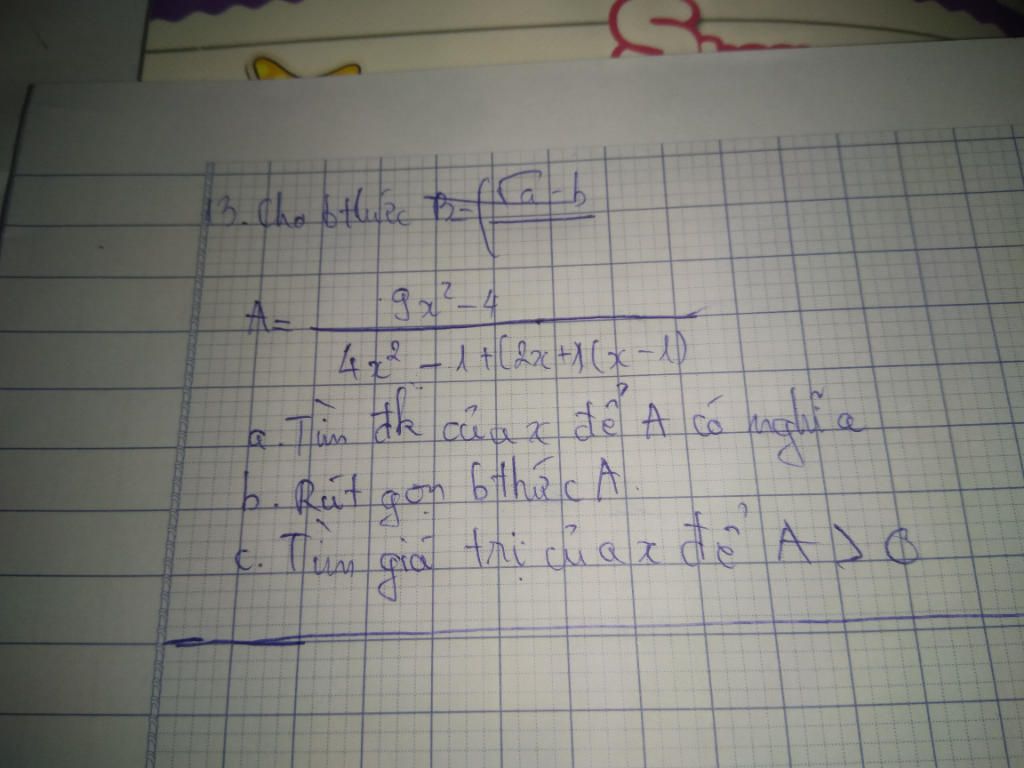 13. Cho bthức B = (√a - b
A = 9x² - 4
4x² - 1 + (2x+1)(x - 1)
a. Tìm đk của x để A có nghĩa
b. Rút gọn bthức A.
c. Tìm giá trị của x để A > 0